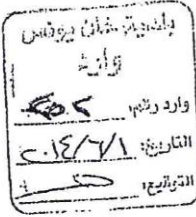 بلدية خان يونس
وارد
وارد رقم:
التاريخ: ٢٠١٤/٦/١
التوقيع: